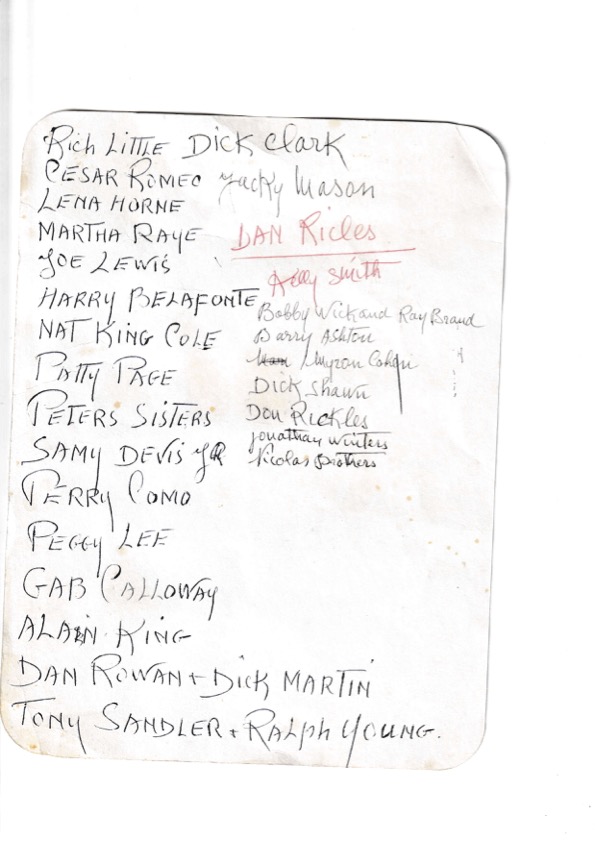 Rich Little Dick Clark
CESAR ROMEO Jacky Mason
LENA HORNE
MARTHA RAYE DAN Ricles
JOE LEWIS
Kelly Smith
HARRY BELAFONTE Bobby Wick and Ray Brand
NAT KING COLE Barry Ashton
Myron Cohen
PATTY PAGE Dick Shawn
PETERS SISTERS Don Rickles
Jonathan Winters
SAMY DEVIS JR Nicolas Brothers
PERRY COMO
PEGGY LEE
GAB CALLOWAY
ALAIN KING
DAN ROWAN + DICK MARTIN
TONY SANDLER + RALPH YOUNG.